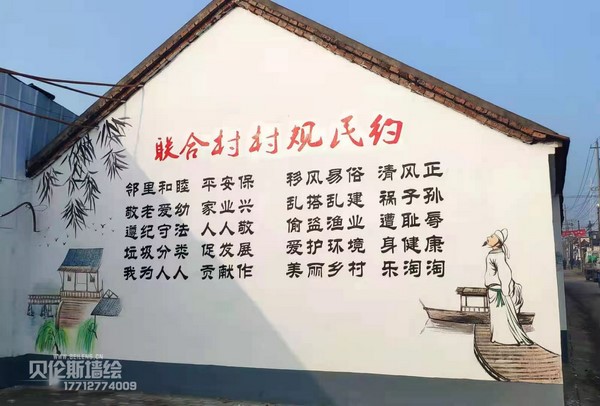 联合村村规民约
邻里和睦 平安保 移风易俗 清风正
敬老爱幼 家业兴 乱搭乱建 祸子孙
遵纪守法 人人敬 偷盗渔业 遭耻辱
垃圾分类 促发展 爱护环境 身健康
我为人人 贡献作 美丽乡村 乐淘淘
贝伦斯墙绘
17712774009